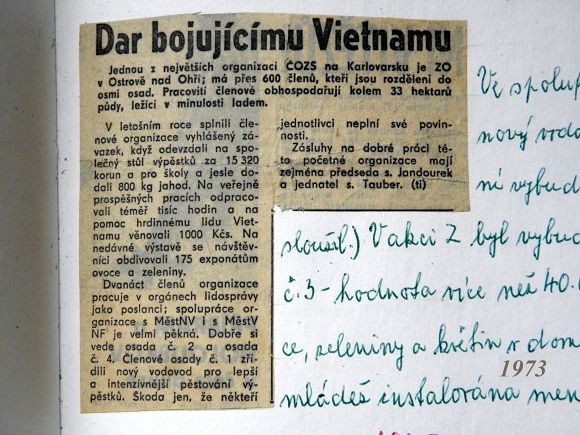 Dar bojujícímu Vietnamu
Jednou z největších organizací ČOZS na Karlovarsku je ZO
v Ostrově nad Ohří; má přes 600 členů, kteří jsou rozděleni do
osmi osad. Pracovití členové obhospodařují kolem 33 hektarů
půdy, ležící v minulosti ladem.
V letošním roce splnili čle-
nové organizace vyhlášený zá-
vazek, když odevzdali na spo-
lečný stůl výpěstků za 15 320
korun a pro školy a jesle do-
dali 800 kg jahod. Na veřejně
prospěšných pracích odpraco-
vali téměř tisíc hodin a na
pomoc hrdinnému lidu Viet-
namu věnovali 1000 Kčs. Na
nedávné výstavě se návštěv-
níci obdivovali 175 exponátům
ovoce a zeleniny.
Dvanáct členů organizace
pracuje v orgánech lidosprávy
jako poslanci; spolupráce or-
ganizace s MěstNV i s MěstV
NF je velmi pěkná. Dobře si
vede osada č. 2 a osada
č. 4. Členové osady č. 1 zří-
dili nový vodovod pro lepší
a intenzívnější pěstování vý-
pěstků. Škoda jen, že někteří
jednotlivci neplní své povin-
nosti.
Zásluhy na dobré práci té-
to početné organizace mají
zejména předseda s. Jandourek
a jednatel s. Tauber. (ti)
Ve spolup
nový vrdo
ní vybud
sloužil.) V akci Z byl vybud
č. 3 - hodnota více než 40.
ce, zeleniny a květin v dom
mládeš instalována men
1973